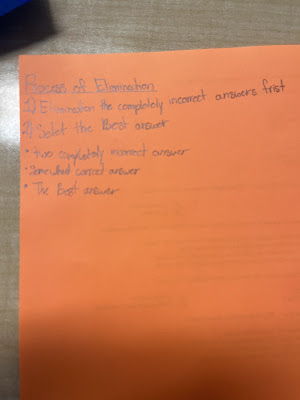 Process of Elimination
1) Elimination the completely incorrect answers frist
2) Selet the Best answer
• two completely incorrect answer
• Somewhat correct answer
• The Best answer